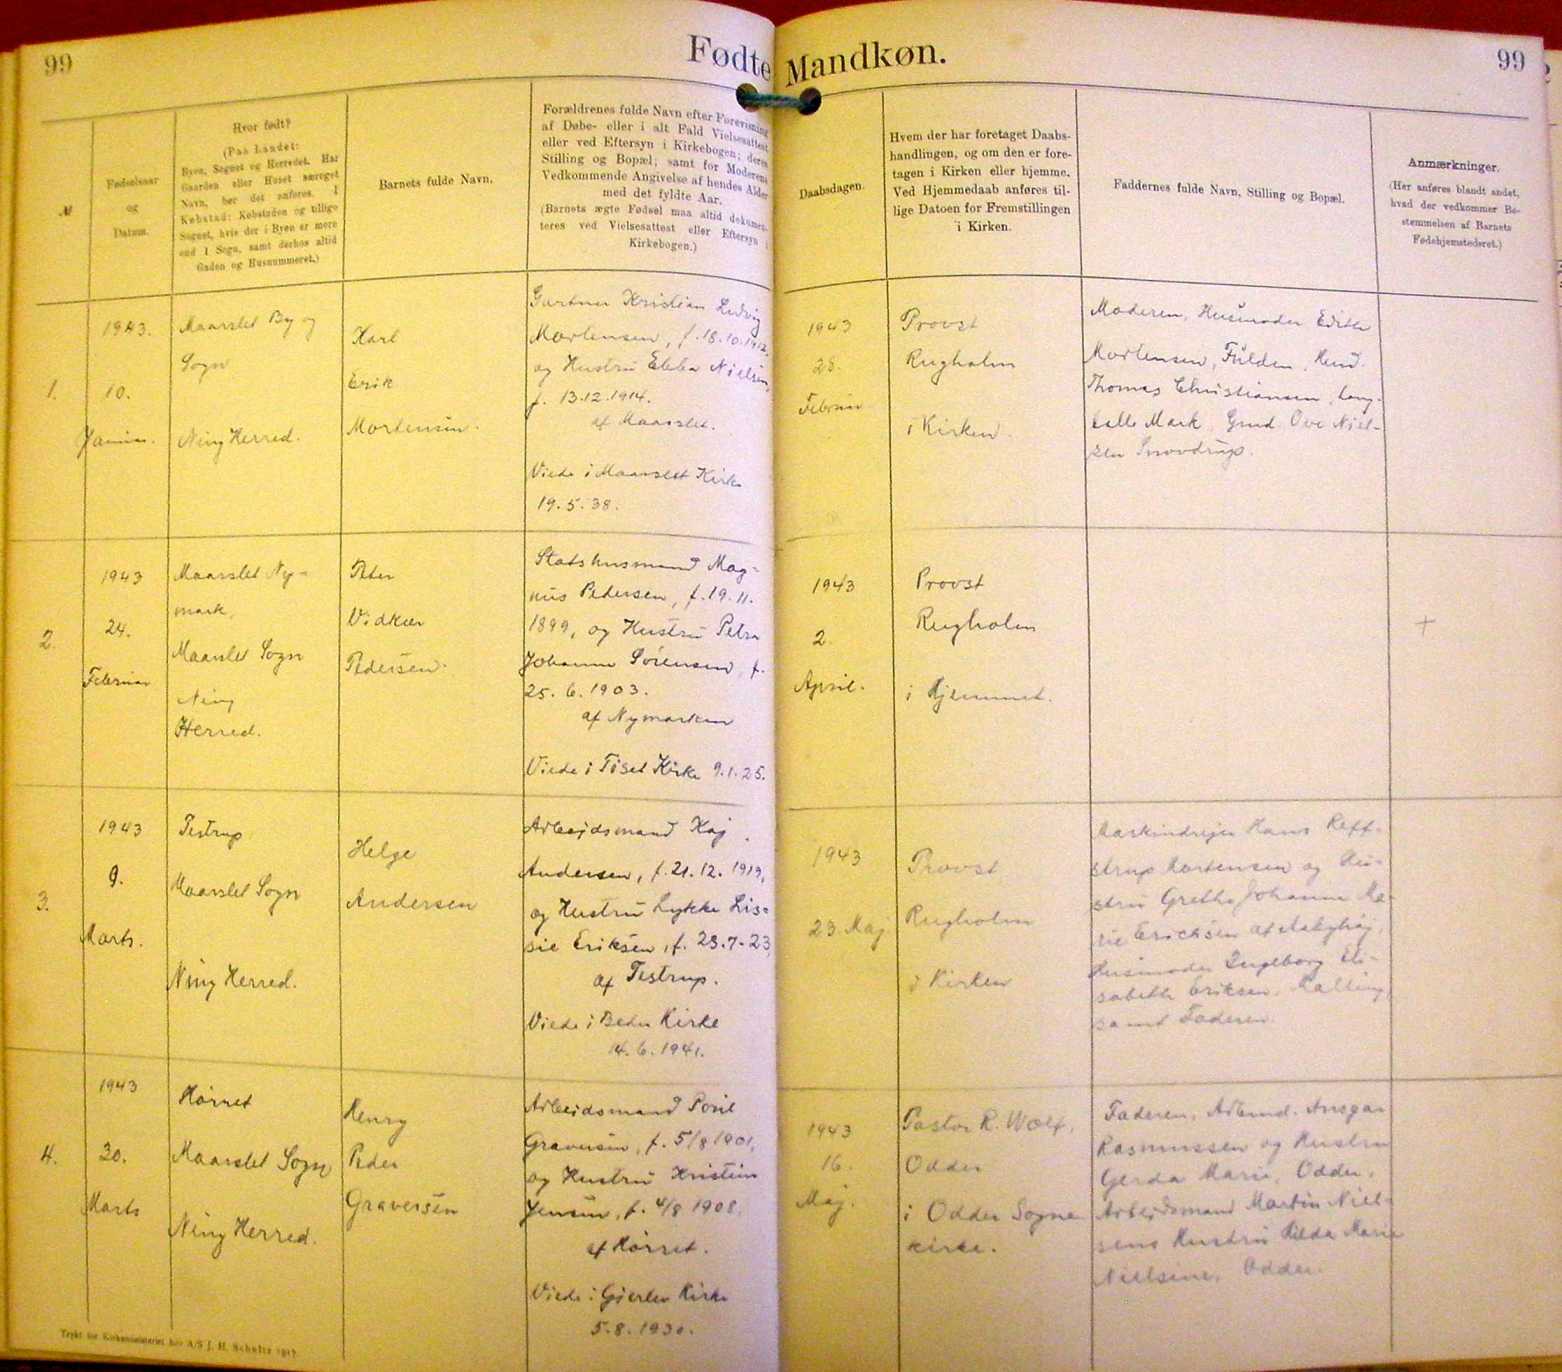 99
Fødte Mandkøn.
99
№
Fødselsaar
og
Datum.
Hvor født?
(Paa Landet:
Byen, Sognet og Herredet. Har
Gaarden eller Huset særeget
Navn, bør det anføres. I
Købstad: Købstaden og tillige
Sognet, hvis der i Byen er mere
end 1 Sogn, samt derhos altid
Gaden og Husnummeret.)
Barnets fulde Navn.
Forældrenes fulde Navn efter Forevisning
af Døbe- eller i alt Fald Vielsesattest
eller ved Eftersyn i Kirkebogen; deres
Stilling og Bopæl; samt for Moderens
Vedkommende Angivelse af hendes Alder
med det fyldte Aar.
(Barnets ægte Fødsel maa altid dokumen-
teres ved Vielsesattest eller Eftersyn i
Kirkebogen.)
Daabsdagen.
Hvem der har foretaget Daabs-
handlingen, og om den er fore-
tagen i Kirken eller hjemme.
Ved Hjemmedaab anføres til-
lige Datoen for Fremstillingen
i Kirken.
Faddernes fulde Navn, Stilling og Bopæl.
Anmærkninger.
(Her anføres blandt andet,
hvad der vedkommer Be-
stemmelsen af Barnets
Fødehjemstedsret.)
1.
1943.
10.
Januar.
Maarslet By og
Sogn
Ning Herred.
Karl
Erik
Mortensen.
Gartner Kristian Ludvig
Mortensen, f. 18.10.1912,
og Hustru Ebba Nielsen,
f. 13.12.1914.
af Maarslet.
Viede i Maarslet Kirke
19.5.38.
1943
28.
Februar
Provst
Rugholm
i Kirken.
Moderen, Husmoder Edith
Mortensen, Fulden, Husmd.
Thomas Christiansen, Lang-
balle Mark, Gmd. Ove Niel-
sen Snovdrup.
2.
1943
24.
Februar
Maarslet Ny-
mark,
Maarslet Sogn
Ning
Herred.
Peter
Vidkær
Pedersen.
Statshusmand Mag-
nus Pedersen, f. 19.11.
1899, og Hustru Petra
Johanne Sörensen, f.
25.6.1903.
af Nymarken
Viede i Tiset Kirke 9.1.25.
1943
2.
April.
Provst
Rugholm
i Hjemmet.
+
3.
1943
9.
Marts.
Testrup
Maarslet Sogn
Ning Herred.
Helge
Andersen
Arbejdsmand Kaj
Andersen, f. 21.12.1919,
og Hustru Lykke Lis-
sie Eriksen, f. 23.7.23,
af Testrup.
Viede i Beder Kirke
14.6.1941.
1943
23. Maj
Provst
Rugholm
i Kirken
Hans Reff-
strup Mortensen og Hu-
stru Grethe Johanne Ma-
rie Ericksen af Aabyhøj,
Husmoder Ingeborg Eli-
sabeth Eriksen, Malling,
samt Faderen.
4.
1943
30.
Marts
Hörret
Maarslet Sogn
Ning Herred.
Henry
Peder
Graversen
Arbejdsmand Povl
Graversen, f. 5/8 1901,
og Hustru Kristine
Jensen, f. 4/8 1908,
af Hörret.
Viede i Gjerlev Kirke
5.8.1930.
1943
16.
Maj.
Pastor R. Wolf,
Odder
i Odder Sogne-
kirke.
Faderen, Arbmd. Ansgar
Rasmussen og Hustru
Gerda Marie, Odder,
Arbejdsmand Martin Niel-
sens Hustru Hilda Marie
Nielsine, Odder.
Trykt for Kirkeministeriet hos A/S J. H. Schultz 1917.